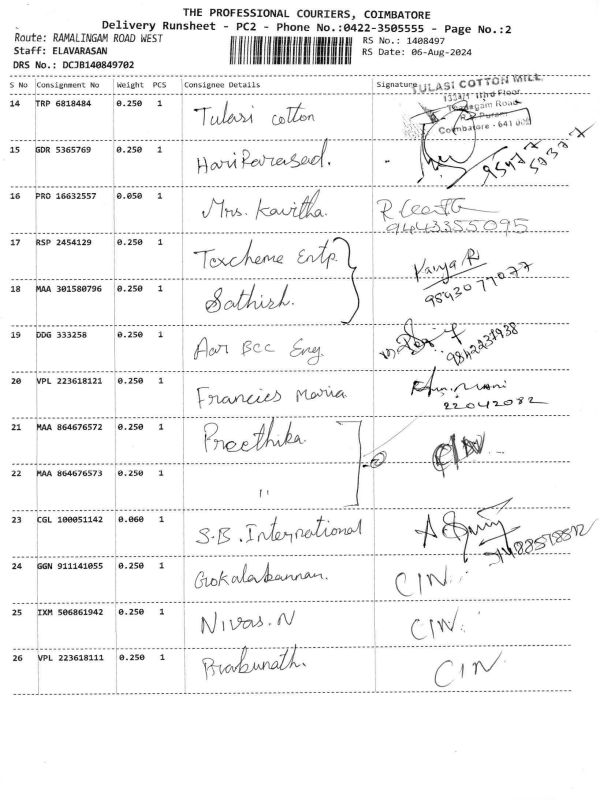 THE PROFESSIONAL COURIERS, COIMBATORE
Delivery Runsheet - PC2 - Phone No.:0422-3505555 - Page No.:2
Route: RAMALINGAM ROAD WEST
RS No.: 1408497
Staff: ELAVARASAN
RS Date: 06-Aug-2024
DRS No.: DCJB140849702
S No Consignment No Weight PCS Consignee Details Signature
TULASI COTTON MILL
IIIrd Floor
Road
R.S. Puram
Coimbatore - 641 002
14 TRP 6818484 0.250 1 Tulasi cotton
15 GDR 5365769 0.250 1 HariParasad.
16 PRO 16632557 0.050 1 Mrs. Kavitha.
9443355095
17 RSP 2454129 0.250 1 Texcheme Entp. Kavya R
18 MAA 301580796 0.250 1 Sathish. 9543077077
19 DDG 333258 0.250 1 Aar BCC Eng. 9842237938
20 VPL 223618121 0.250 1 Francies Maria. Mani
22042082
21 MAA 864676572 0.250 1 Preethika. CIN
22 MAA 864676573 0.250 1 "
23 CGL 100051142 0.060 1 S.B. International
24 GGN 911141055 0.250 1 Gokalakannan. CIN.
25 IXM 506861942 0.250 1 Nivas.N CIN.
26 VPL 223618111 0.250 1 Prabunath. CIN